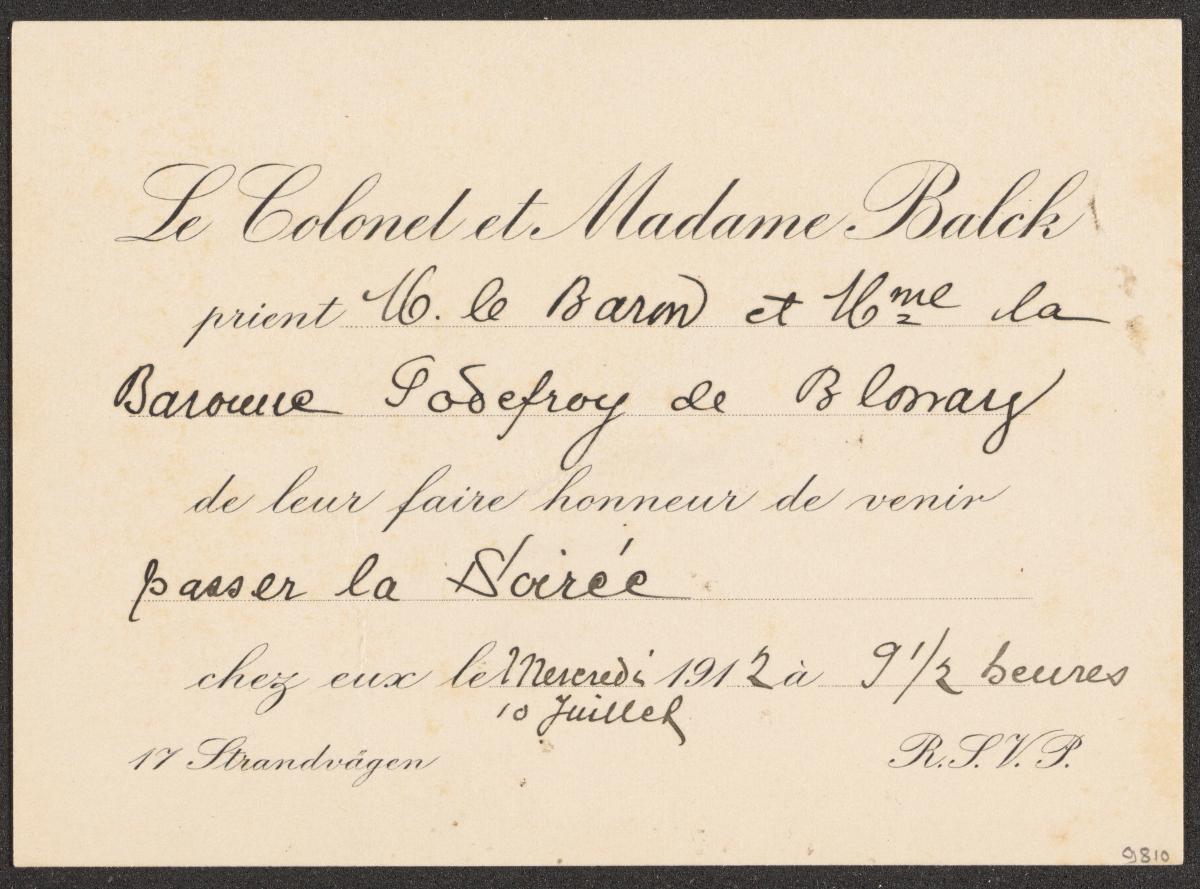 Le Colonel et Madame Balck
prient M. le Baron et Mme la
Baronne Godefroy de Blonay
de leur faire honneur de venir
passer la Soirée
chez eux le Mercredi 1912 à 9 1/2 heures
10 Juillet
17 Strandvägen R.S.V.P.
9810